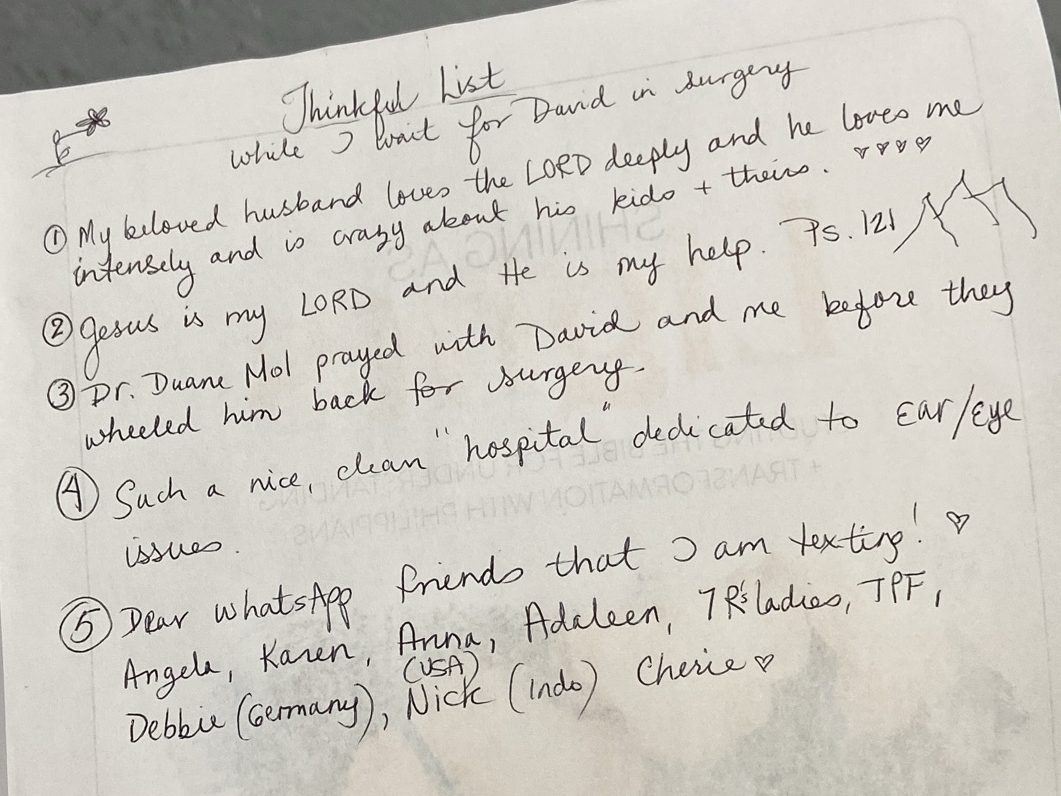 Thinkful List
while I wait for David in surgery
① My beloved husband loves the LORD deeply and he loves me
intensely and is crazy about his kids + theirs. ♡♡♡♡
② Jesus is my LORD and He is my help. Ps. 121
③ Dr. Duane Mol prayed with David and me before they
wheeled him back for surgery.
④ Such a nice, clean "hospital" dedicated to Ear/Eye
issues.
⑤ Dear WhatsApp friends that I am texting! ♡
Angela, Karen, Anna, Adaleen, 7 R's ladies, TPF,
(USA)
Debbie (Germany), Nick (Indo) Cherie ♡